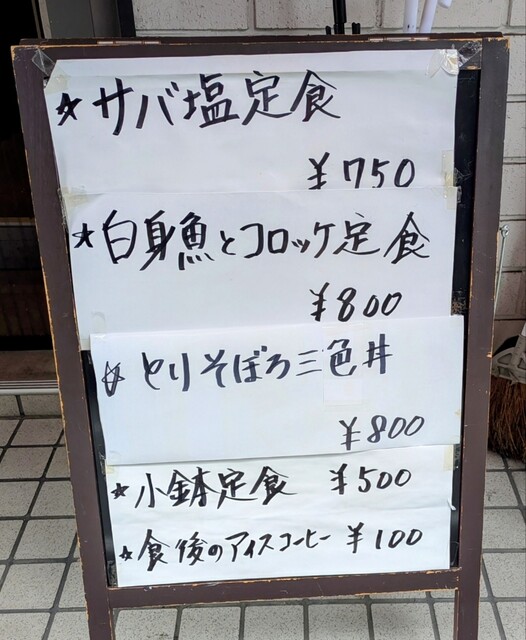 ☆サバ塩定食
¥750
☆白身魚とコロッケ定食
¥800
☆とりそぼろ三色丼
¥800
☆小鉢定食 ¥500
☆食後のアイスコーヒー ¥100